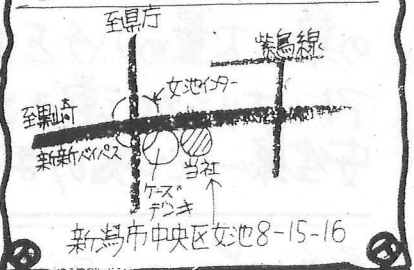 至県庁
紫鳥線
女池インター
至黒崎
新新バイパス
ケーズ
デンキ
当社
新潟市中央区女池8-15-16